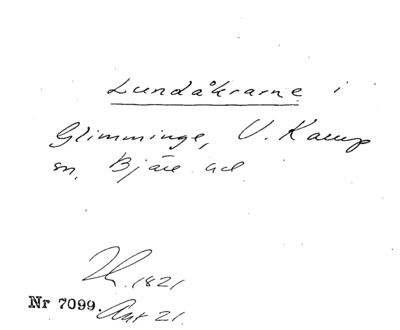 Lundåkrarne i
Glimminge, V. Karup
sn, Bjäre hd
1821
Nr 7099. Akt 21.